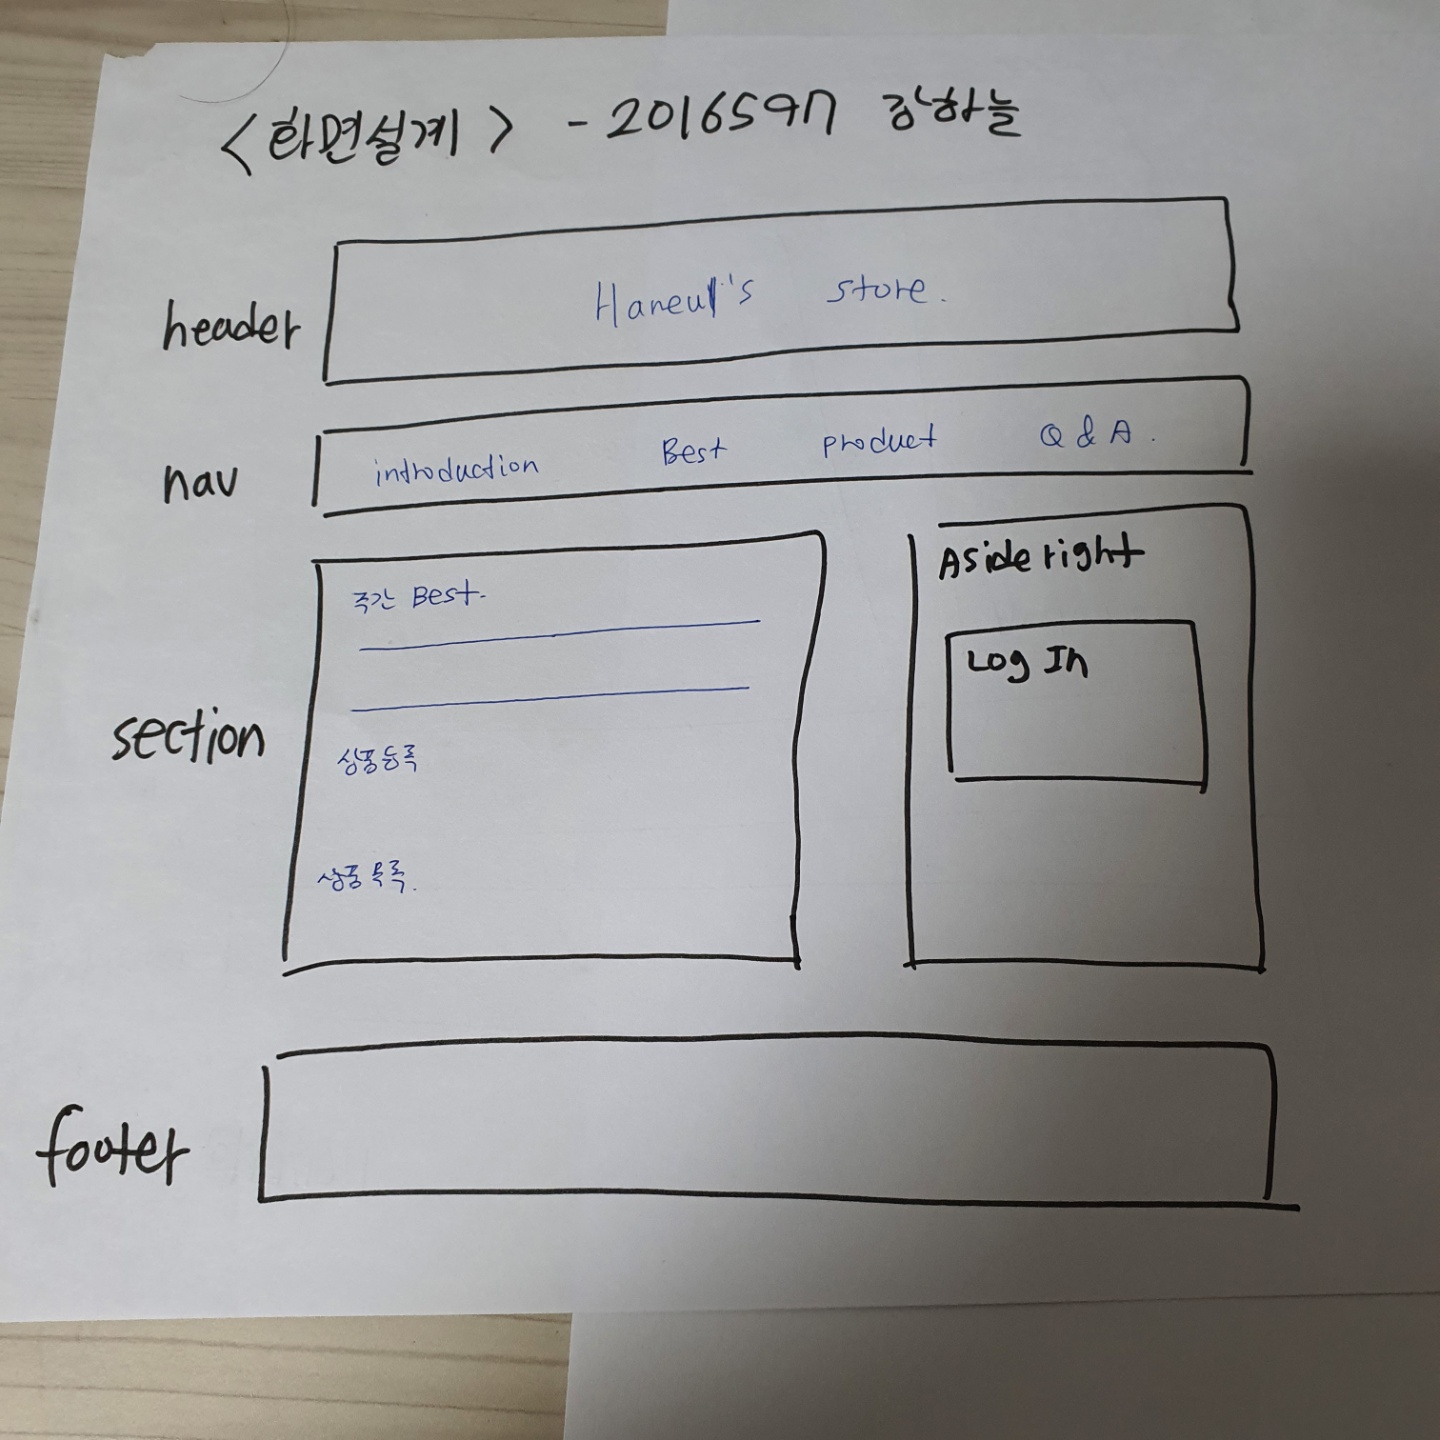 <화면설계> - 2016597 강하늘
header
Haneul's store.
nav
introduction Best product Q & A.
section
주간 Best.
상품등록
상품목록.
Aside right
Log In
footer